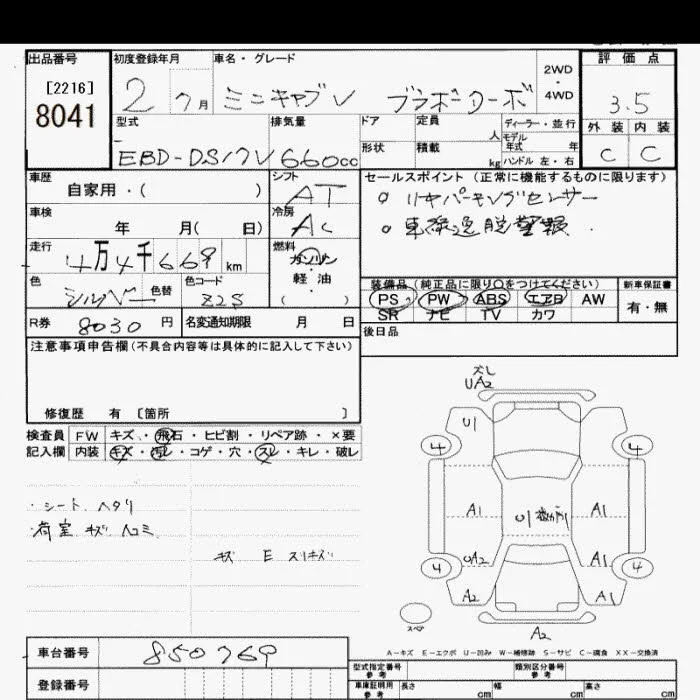 出品番号
[2216]
8041
初度登録年月
2 7月
車名・グレード
ミニキャブV ブラボーターボ
2WD
・
4WD
評価点
3.5
外装 内装
C C
型式
EBD-DS17V
排気量
660cc
ドア
形状
定員 人
積載 kg
ディーラー・並行
モデル
年式 年
ハンドル 左・右
車歴
自家用・( )
シフト
AT
車検
年 月( 日)
冷房
AC
走行
4万4千669km
燃料
ガソリン
軽油
( )
色
シルバー
色替
色コード
Z2S
R券
8030円
名変通知期限 月 日
セールスポイント(正常に機能するものに限ります)
○リヤパーキングセンサー
○車線逸脱警報.
装備品(純正品に限り○をつけてください)
PS PW ABS エアB AW
SR ナビ TV カワ
新車保証書
有・無
後日品
注意事項申告欄(不具合内容等は具体的に記入して下さい)
修復歴 有 [箇所 ]
検査員
記入欄
FW キズ・飛石・ヒビ割・リペア跡・×要
内装 キズ・汚レ・コゲ・穴・スレ・キレ・破レ
・シート ヘタリ
・荷室 キズ ヘコミ
キズ E スリキズ
ズレ
UA2
U1
4 4
A1 U1 A1
UA2 A1
4 4
A2 A1
スペア
A2
A-キズ E-エクボ U-凹み W-補修跡 S-サビ C-腐食 XX-交換済
車台番号
850769
登録番号
型式指定番号
参考
類別区分番号
参考
車庫証明用
参考
長さ cm
幅 cm
高さ cm